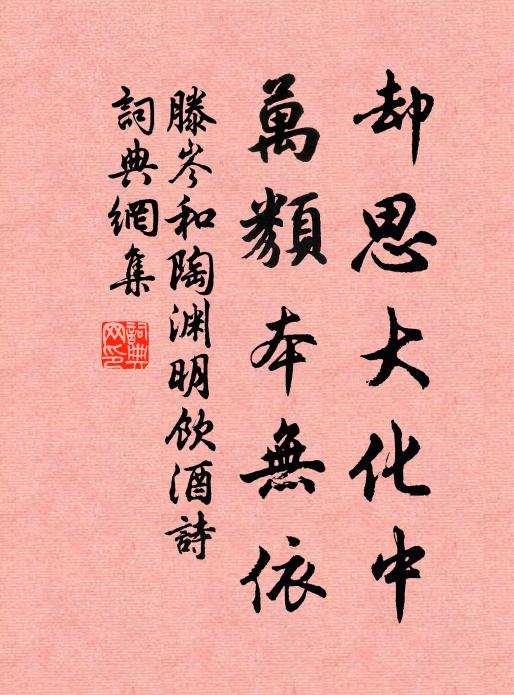 却思大化中
萬類本無依
滕岑和陶渊明饮酒詩
詞典網集
詞典网印